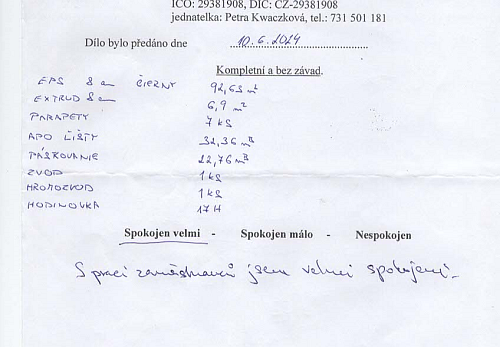 IČO: 29381908, DIČ: CZ-29381908
jednatelka: Petra Kwaczková, tel.: 731 501 181
Dílo bylo předáno dne 10.6.2024
Kompletní a bez závad.
EPS 8 cm ČIERNY 92,63 m²
EXTRUD 8 cm 6,9 m²
PARAPETY 7 kS
APO LIŠTY 32,36 mB
PÁSKOVANIE 22,76 mB
ZVOD 1 kS
HROMOZVOD 1 kS
HODINOVKA 17 H
Spokojen velmi - Spokojen málo - Nespokojen
S prací zaměstnanců jsem velmi spokojení.